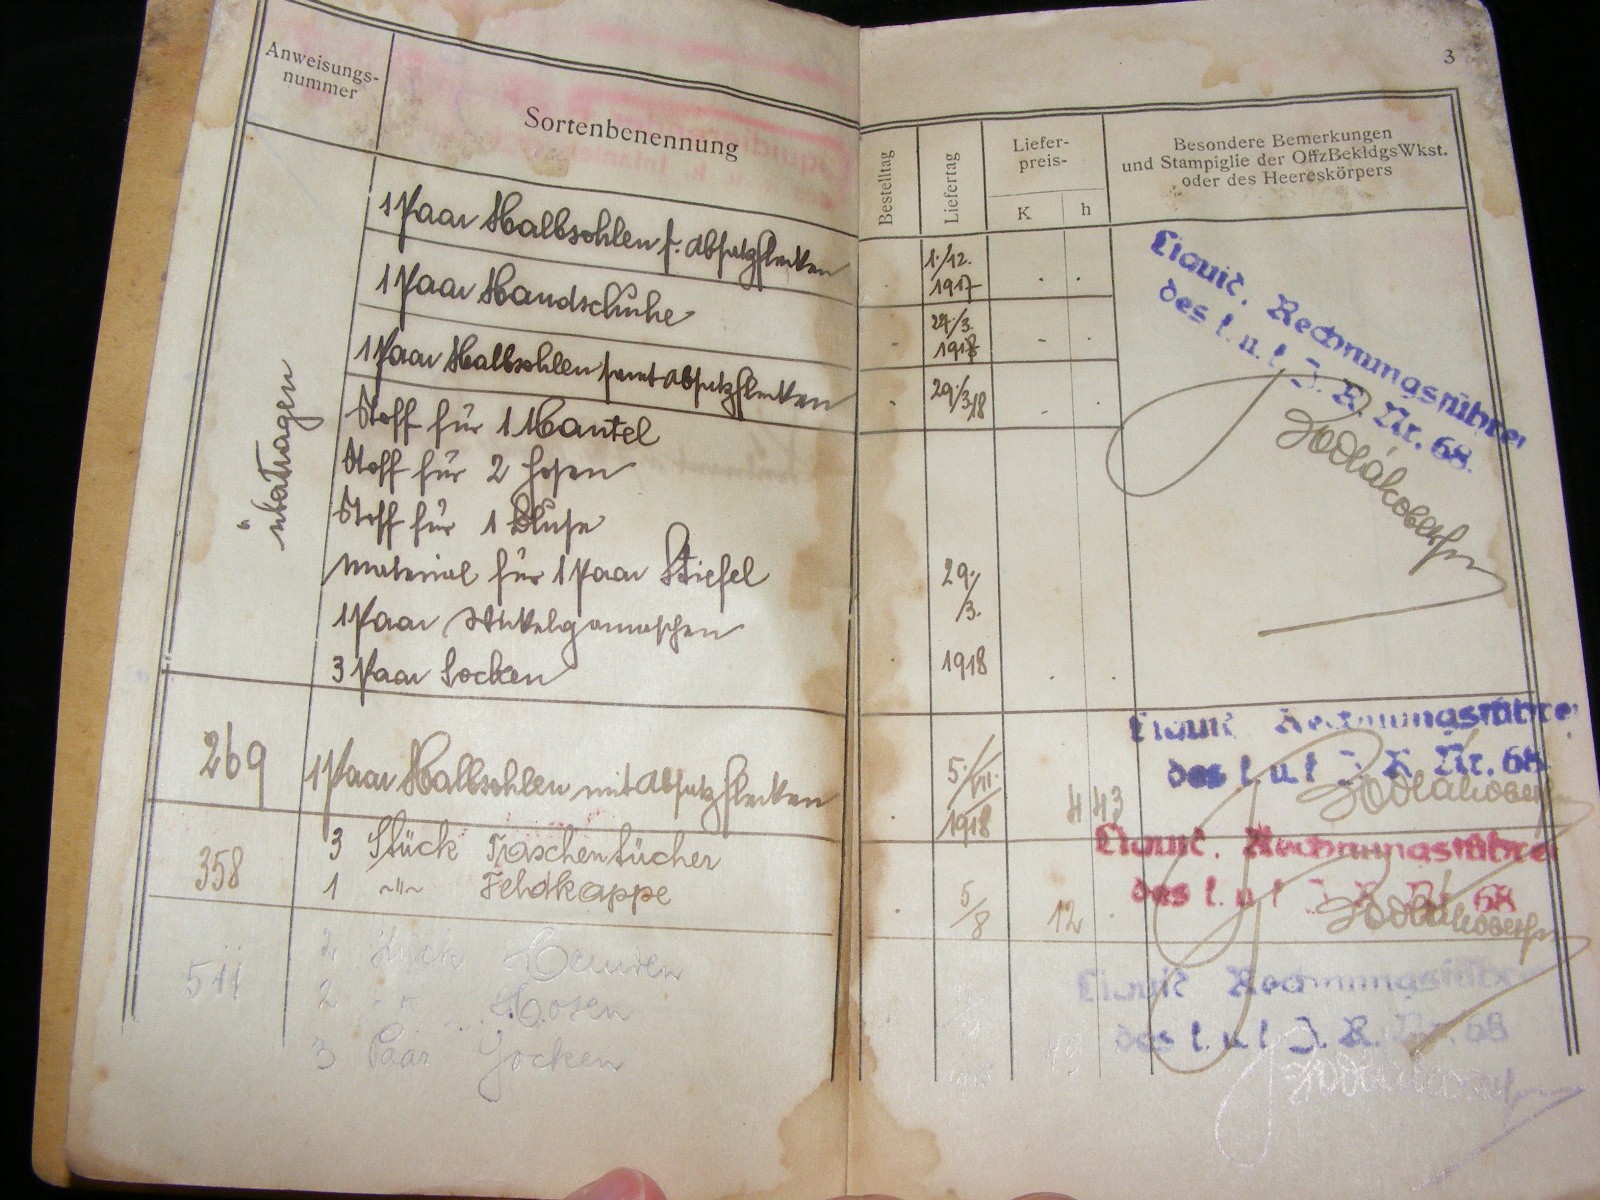 3
Anweisungs-
nummer
Sortenbenennung
Bestelltag
Liefertag
Liefer-
preis-
K
h
Besondere Bemerkungen
und Stampiglie der OffzBekldgsWkst.
oder des Heereskörpers
übertragen
1 Paar Halbsohlen s. Absatzflecken
1./12.
1917
1 Paar Handschuhe
1918
1 Paar Halbsohlen samt Absatzflecken
29./3.18
Liquid. Rechnungsführer
des k. u. k. I. R. Nr. 68.
Stoff für 1 Mantel
Stoff für 2 Hosen
Stoff für 1 Bluse
Material für 1 Paar Stiefel
29./
/3.
1 Paar Wickelgamaschen
3 Paar Socken
1918
269
1 Paar Halbsohlen mit Absatzflecken
5./
1918
4 43
Liquid. Rechnungsführer
des k. u. k. I. R. Nr. 68
358
3 Stück Taschentücher
1 -"- Feldkappe
5/8
12
Liquid. Rechnungsführer
des k. u. k. I. R. Nr. 68
511
2 Stück Hemden
2 -"- Hosen
3 Paar Socken
Liquid. Rechnungsführer
des k. u. k. I. R. Nr. 68